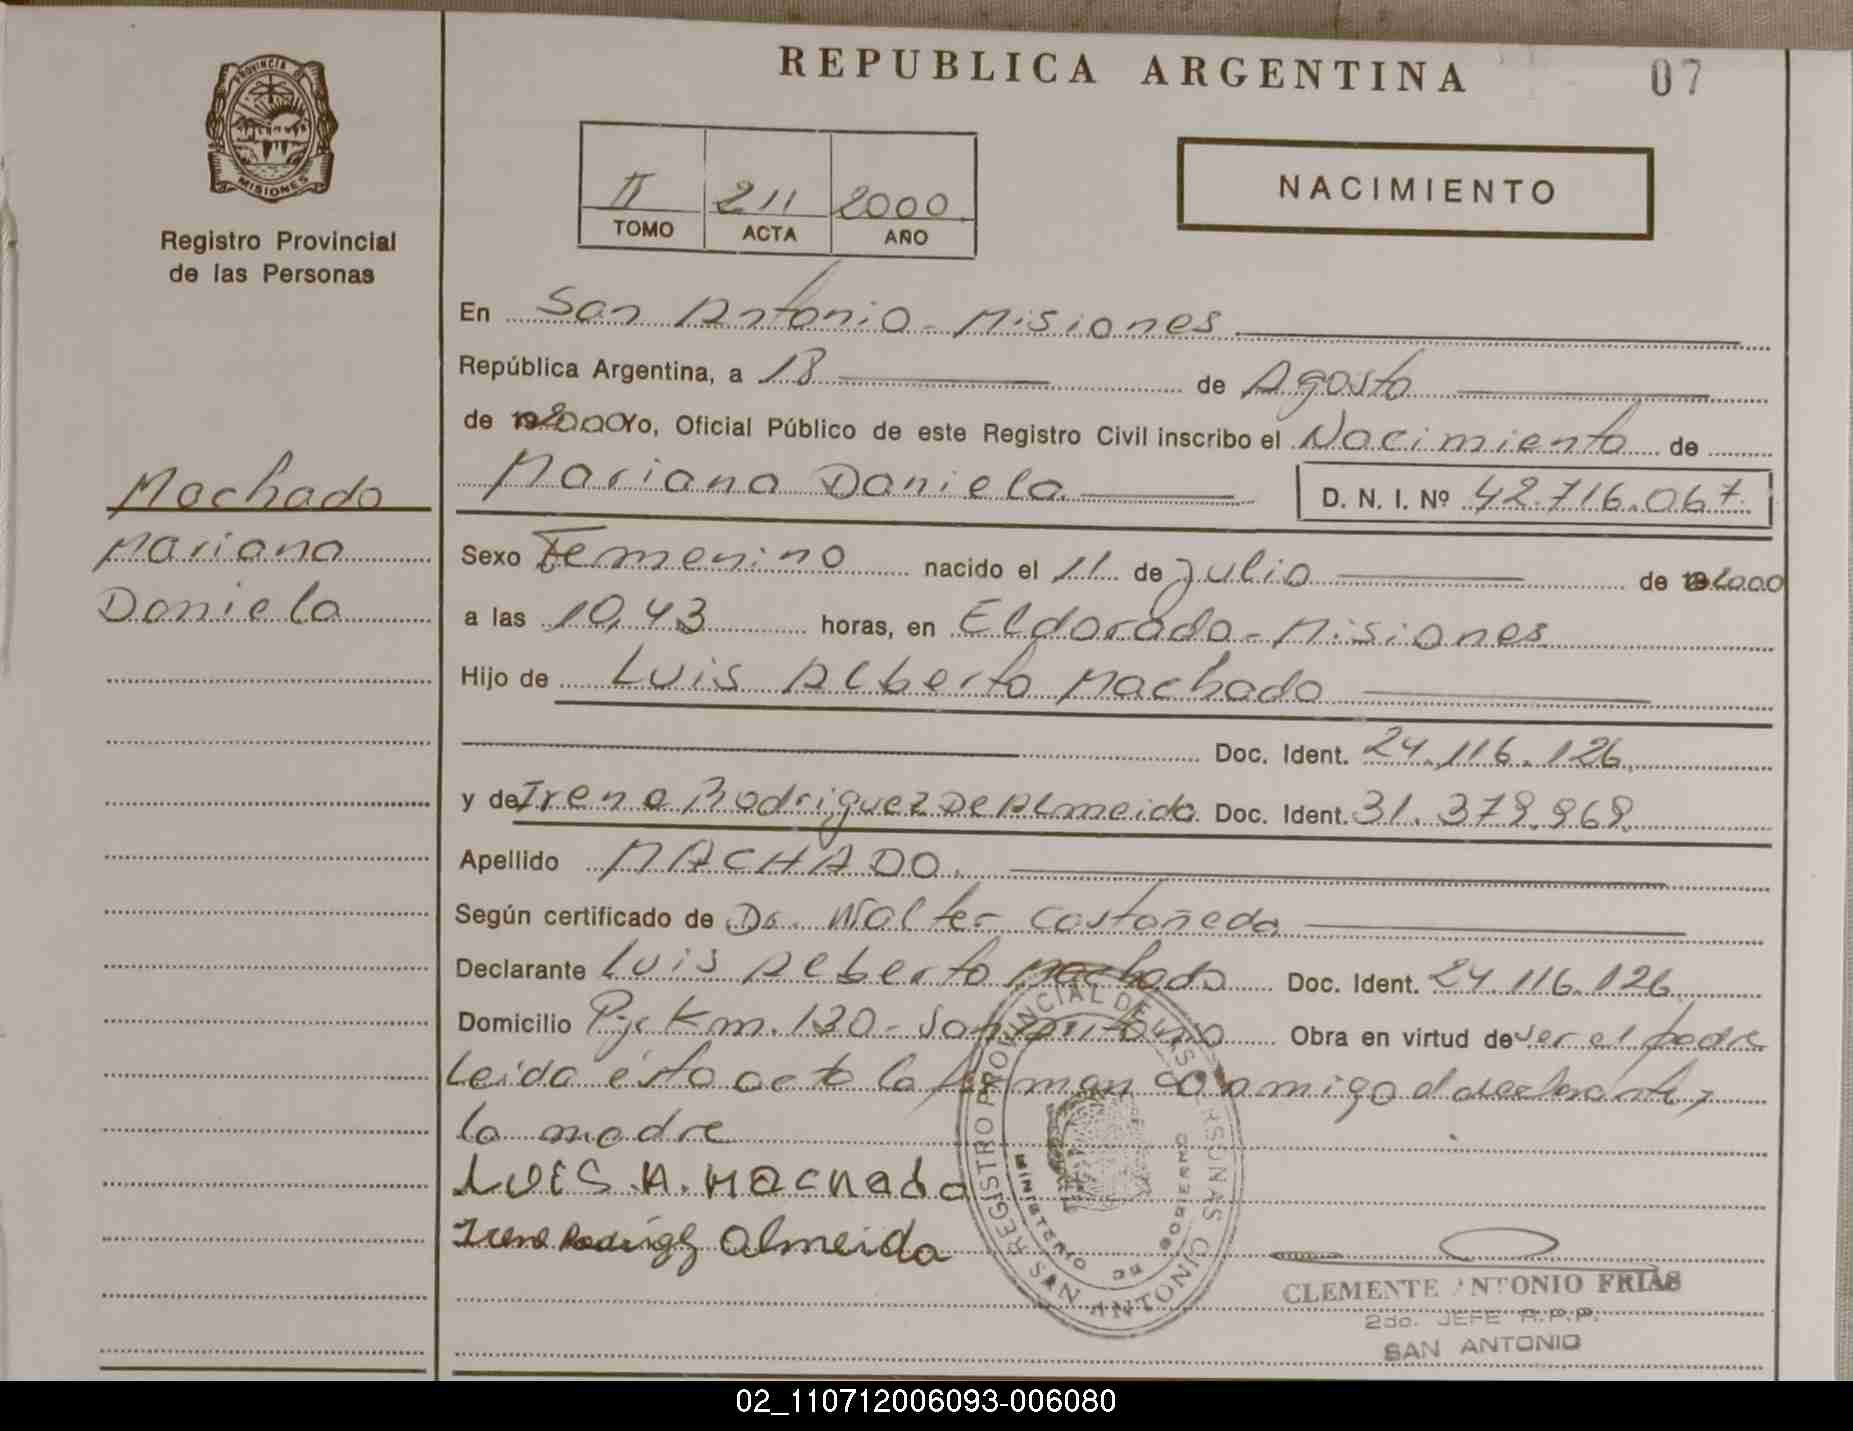 REPUBLICA ARGENTINA
07
PROVINCIA DE
MISIONES
Registro Provincial
de las Personas
II 211 2000
TOMO ACTA AÑO
NACIMIENTO
En San Antonio - Misiones
República Argentina, a 18 de Agosto
de 2000 Yo, Oficial Público de este Registro Civil inscribo el Nacimiento de
Mariana Daniela D. N. I. Nº 42.716.067
Machado
Mariana
Daniela
Sexo Femenino nacido el 11 de Julio de 2000
a las 10,43 horas, en Eldorado - Misiones
Hijo de Luis Alberto Machado
Doc. Ident. 24.116.126
y de Irene Rodriguez De Almeida Doc. Ident. 31.379.969
Apellido MACHADO
Según certificado de Dr. Walter Castañeda
Declarante Luis Alberto Machado Doc. Ident. 24.116.126
Domicilio Pje Km. 120 - San Antonio Obra en virtud de ser el padre
Leida ésta acta la firman conmigo el declarante y
la madre
LUIS A. MACHADO
Irene Almeida
REGISTRO PROVINCIAL DE LAS PERSONAS
SAN ANTONIO
MINISTERIO DE GOBIERNO
CLEMENTE ANTONIO FRIAS
2do. JEFE R.P.P.
SAN ANTONIO
02_110712006093-006080